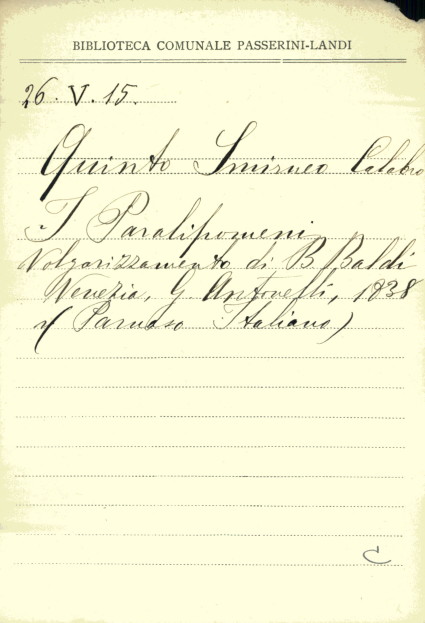 BIBLIOTECA COMUNALE PASSERINI-LANDI
26.V.15.
Quinto Smirneo Calabro
I Paralipomeni
Volgarizzamento di B Baldi
Venezia, G. Antonelli, 1838
(Parnaso Italiano)
C